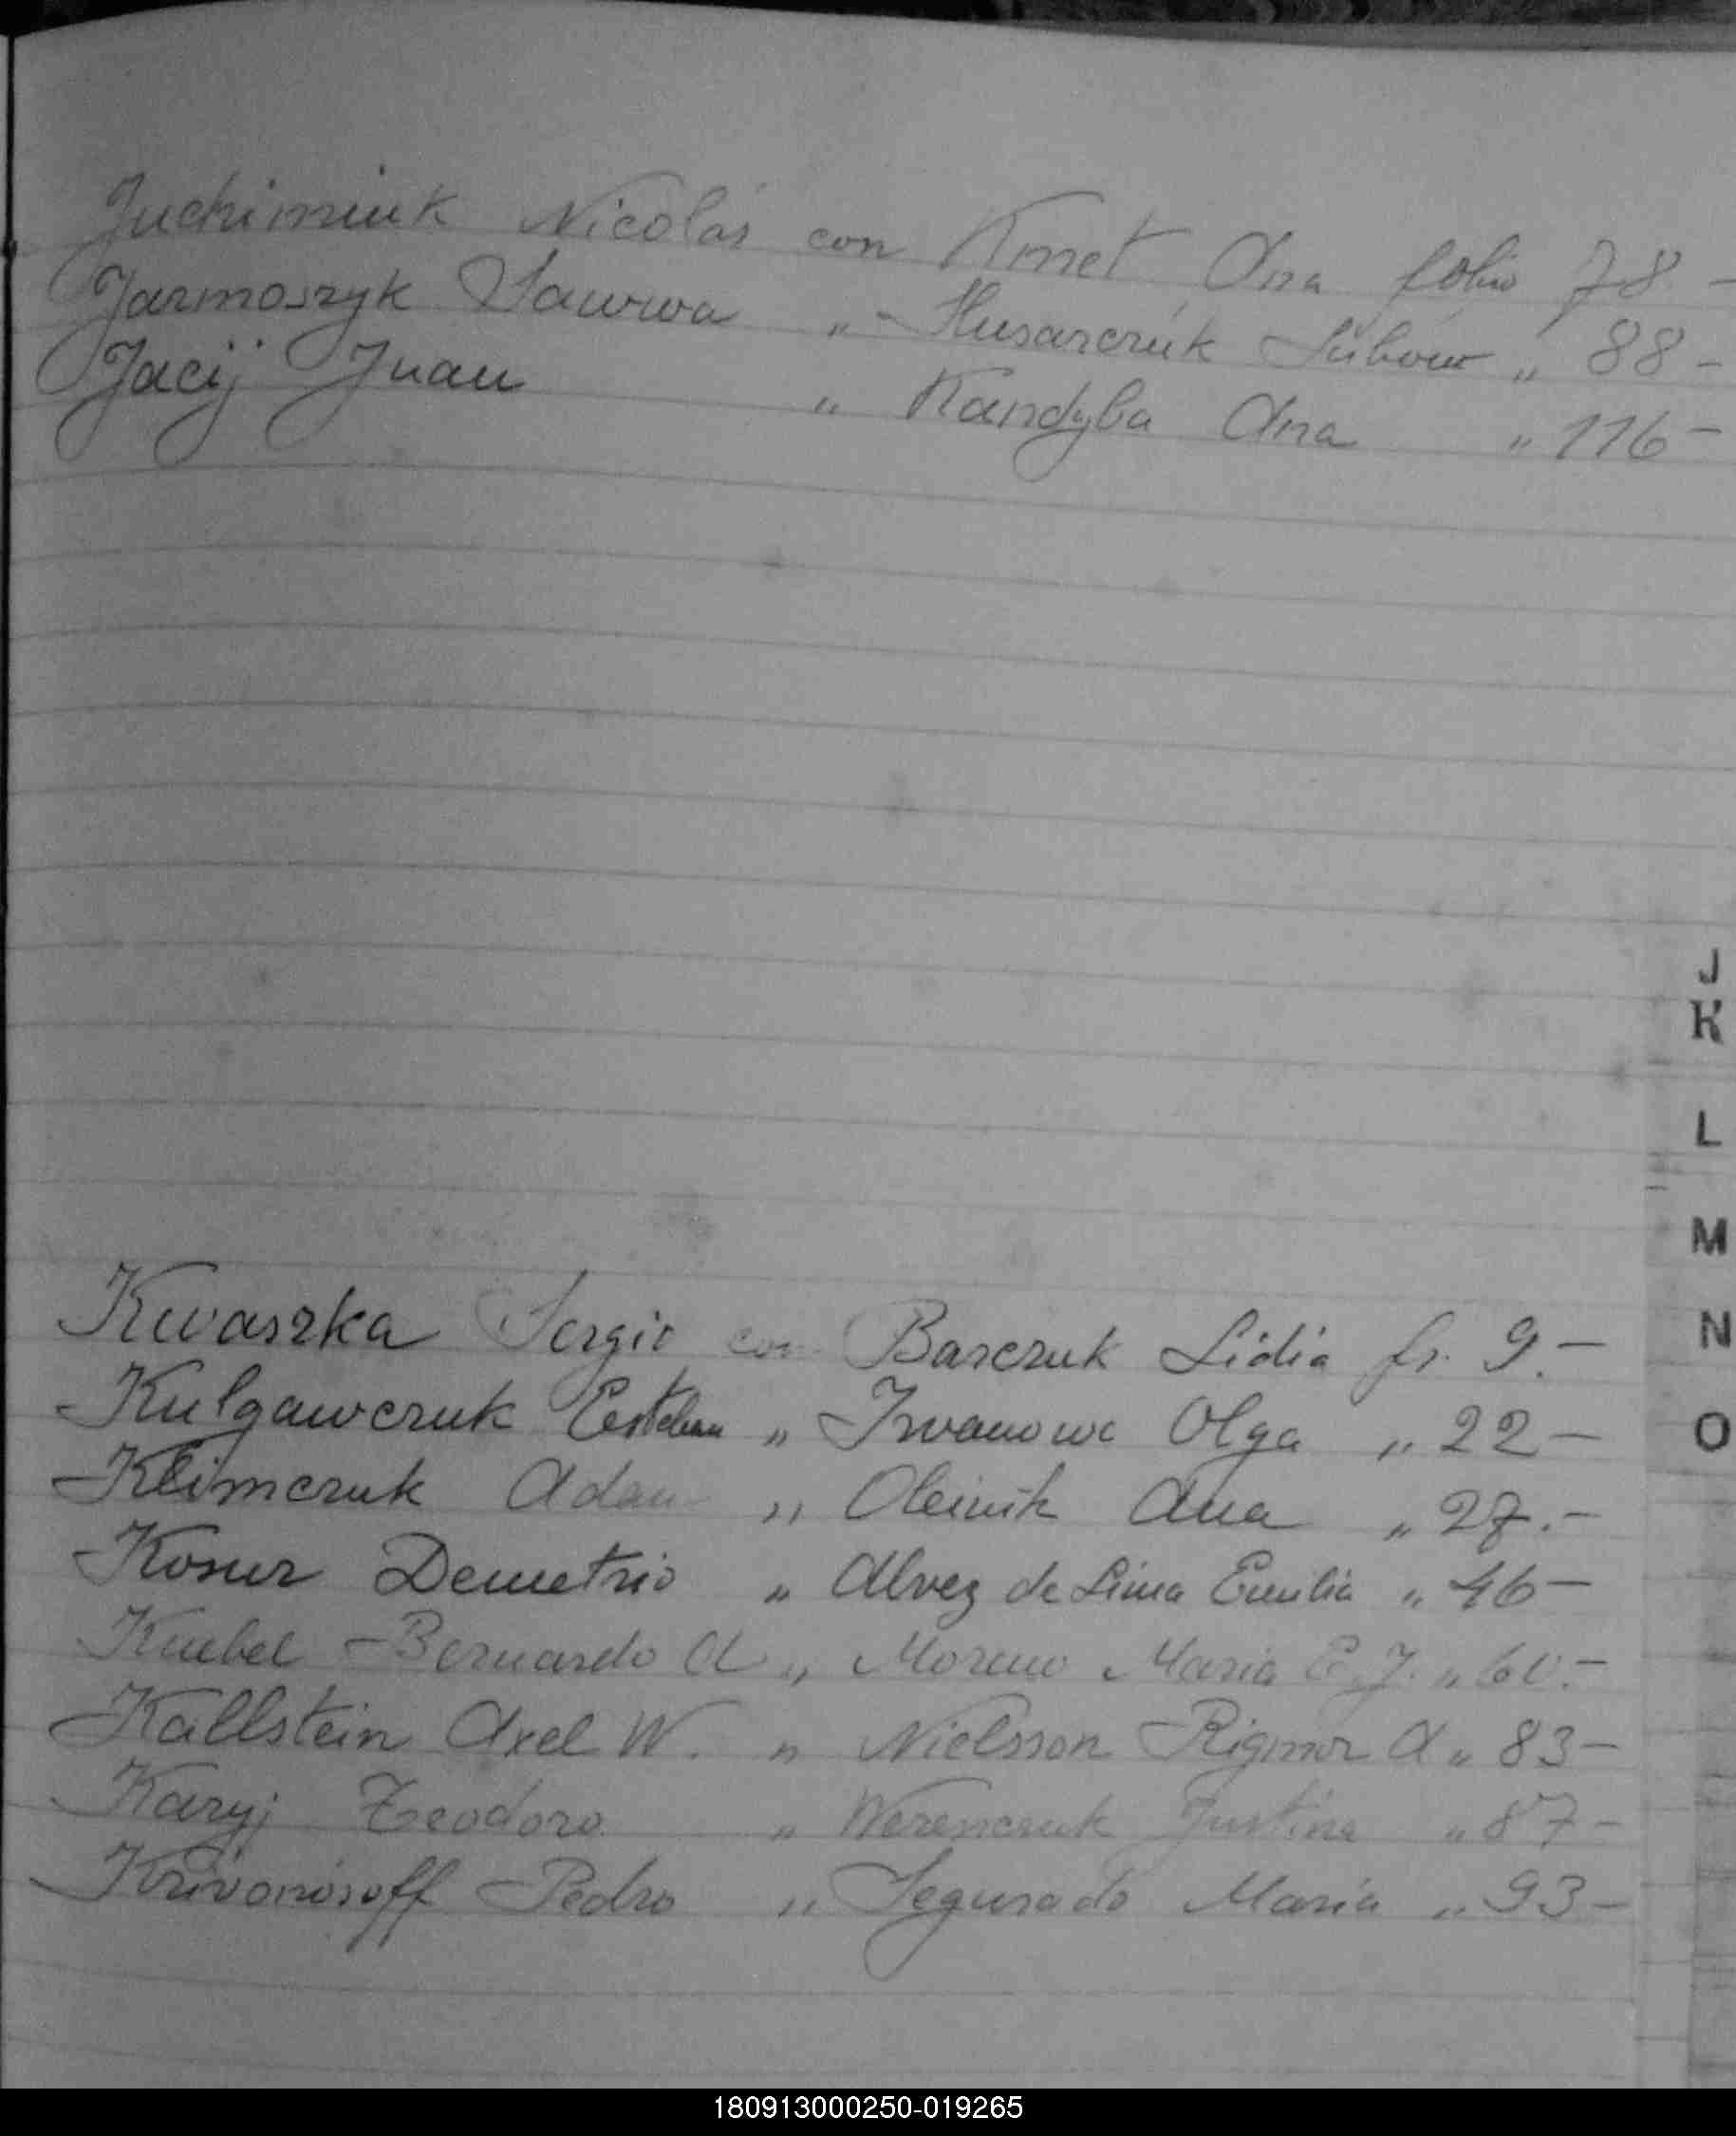 Juchimiuk Nicolás con Kmet Ana folio 78 -
Jarmoszyk Sawwa „ - Husarczuk Lubow „ 88 -
Jacij Juan „ Kandyba Ana „ 116 -
J
K
L
M
N
O
Kwaszka Sergio con Barczuk Lidia fs. 9. -
Kulgawczuk Esteban „ Iwanowa Olga „ 22 -
Klimczuk Adan „ Oleinik Ana „ 27. -
Kosur Demetrio „ Alvez de Lima Emilia „ 46 -
Knebel - Bernardo A „ Moreno Maria E. J. „ 60. -
Kallstein Axel W. „ Nielsson Rigmor A „ 83 -
Karyj Teodoro „ Werenczuk Justina „ 87 -
Krivonosoff Pedro „ Segurado Maria „ 93 -
180913000250-019265